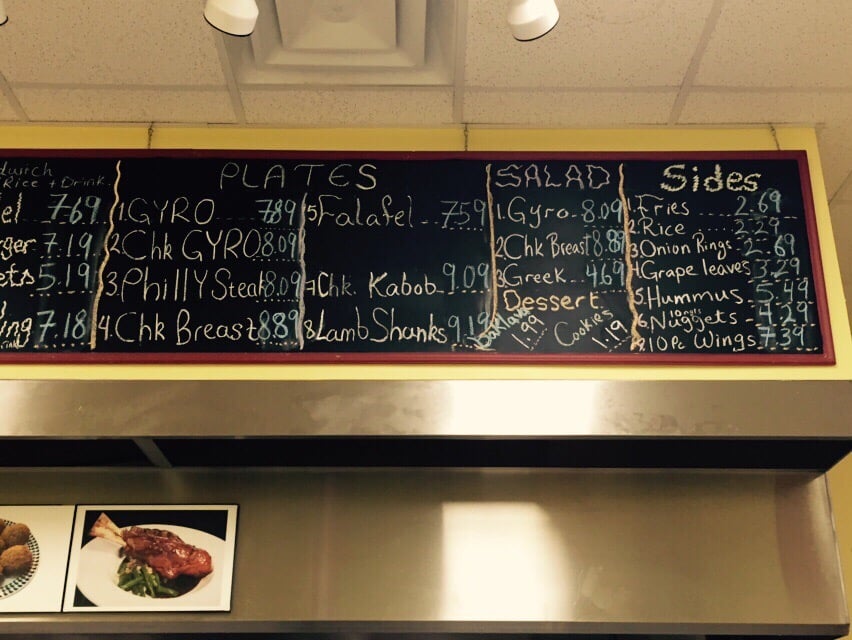 Rice + Drink.
7.69
7.19
5.19
7.18
PLATES
1. GYRO 7.89
2. Chk GYRO 8.09
3. Philly Steak 8.09
4. Chk Breast 8.89
5 Falafel 7.59
7 Chk. Kabob 9.09
8 Lamb Shanks 9.19
SALAD
1. Gyro 8.09
2. Chk Breast 8.89
3. Greek 4.69
Dessert
Baklava 1.99
Cookies 1.19
Sides
1. Fries 2.69
2. Rice 2.29
3 Onion Rings 2.69
4 Grape leaves 3.29
5. Hummus 5.49
6. Nuggets 4.29
10 Pc Wings 7.39